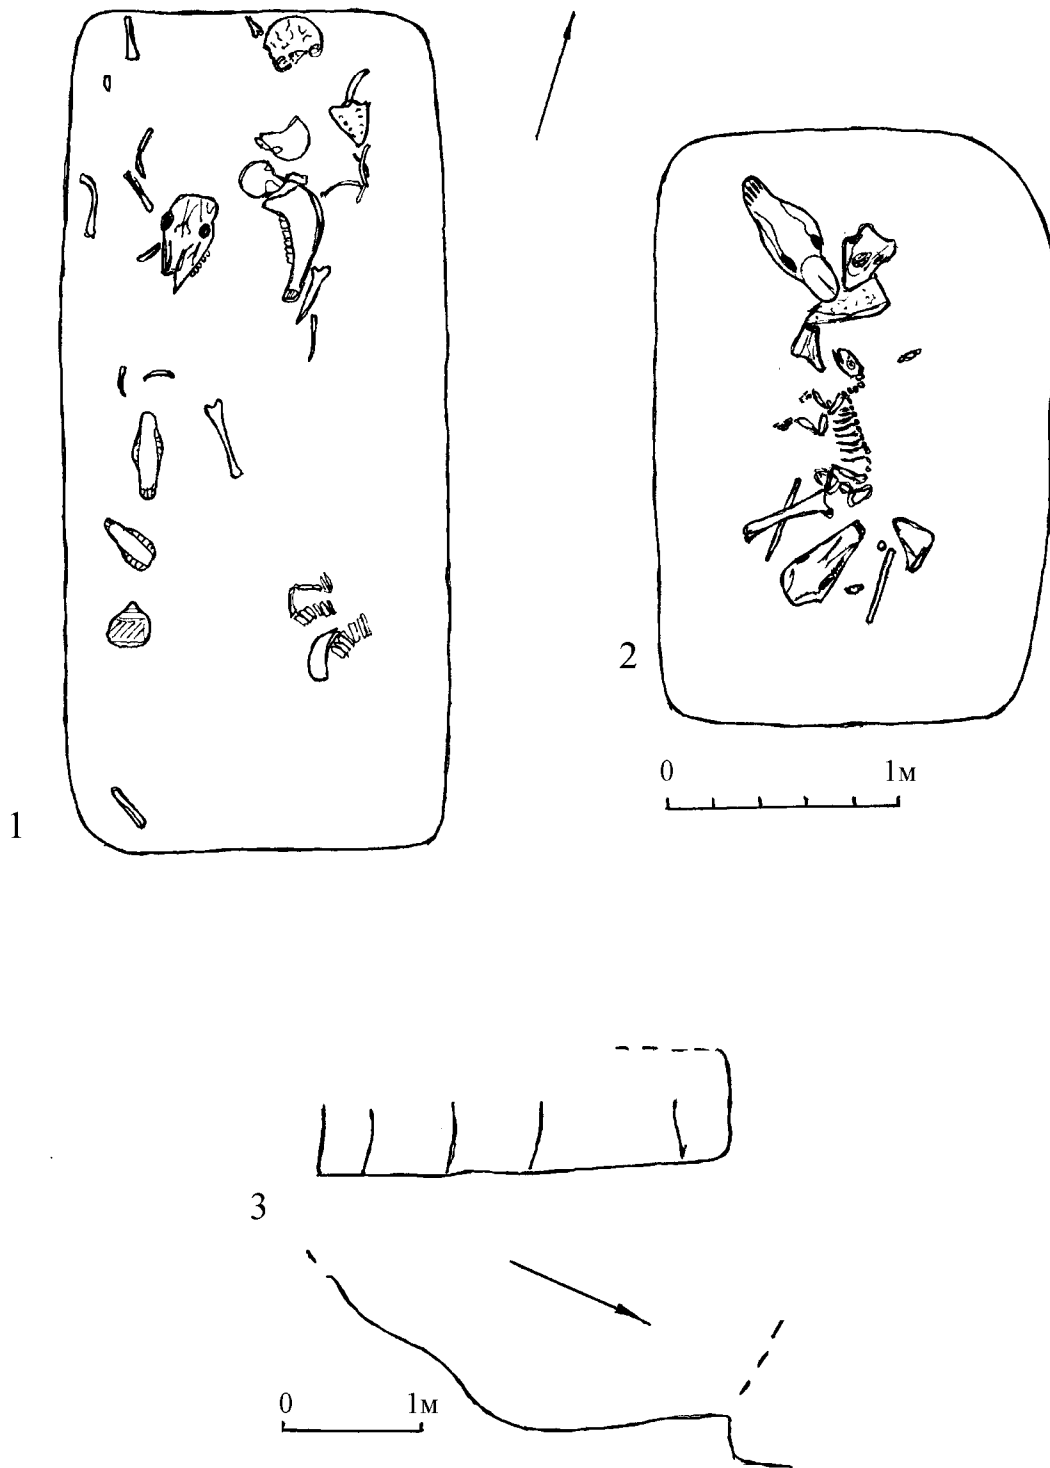 2
0 1м
1
3
0 1м